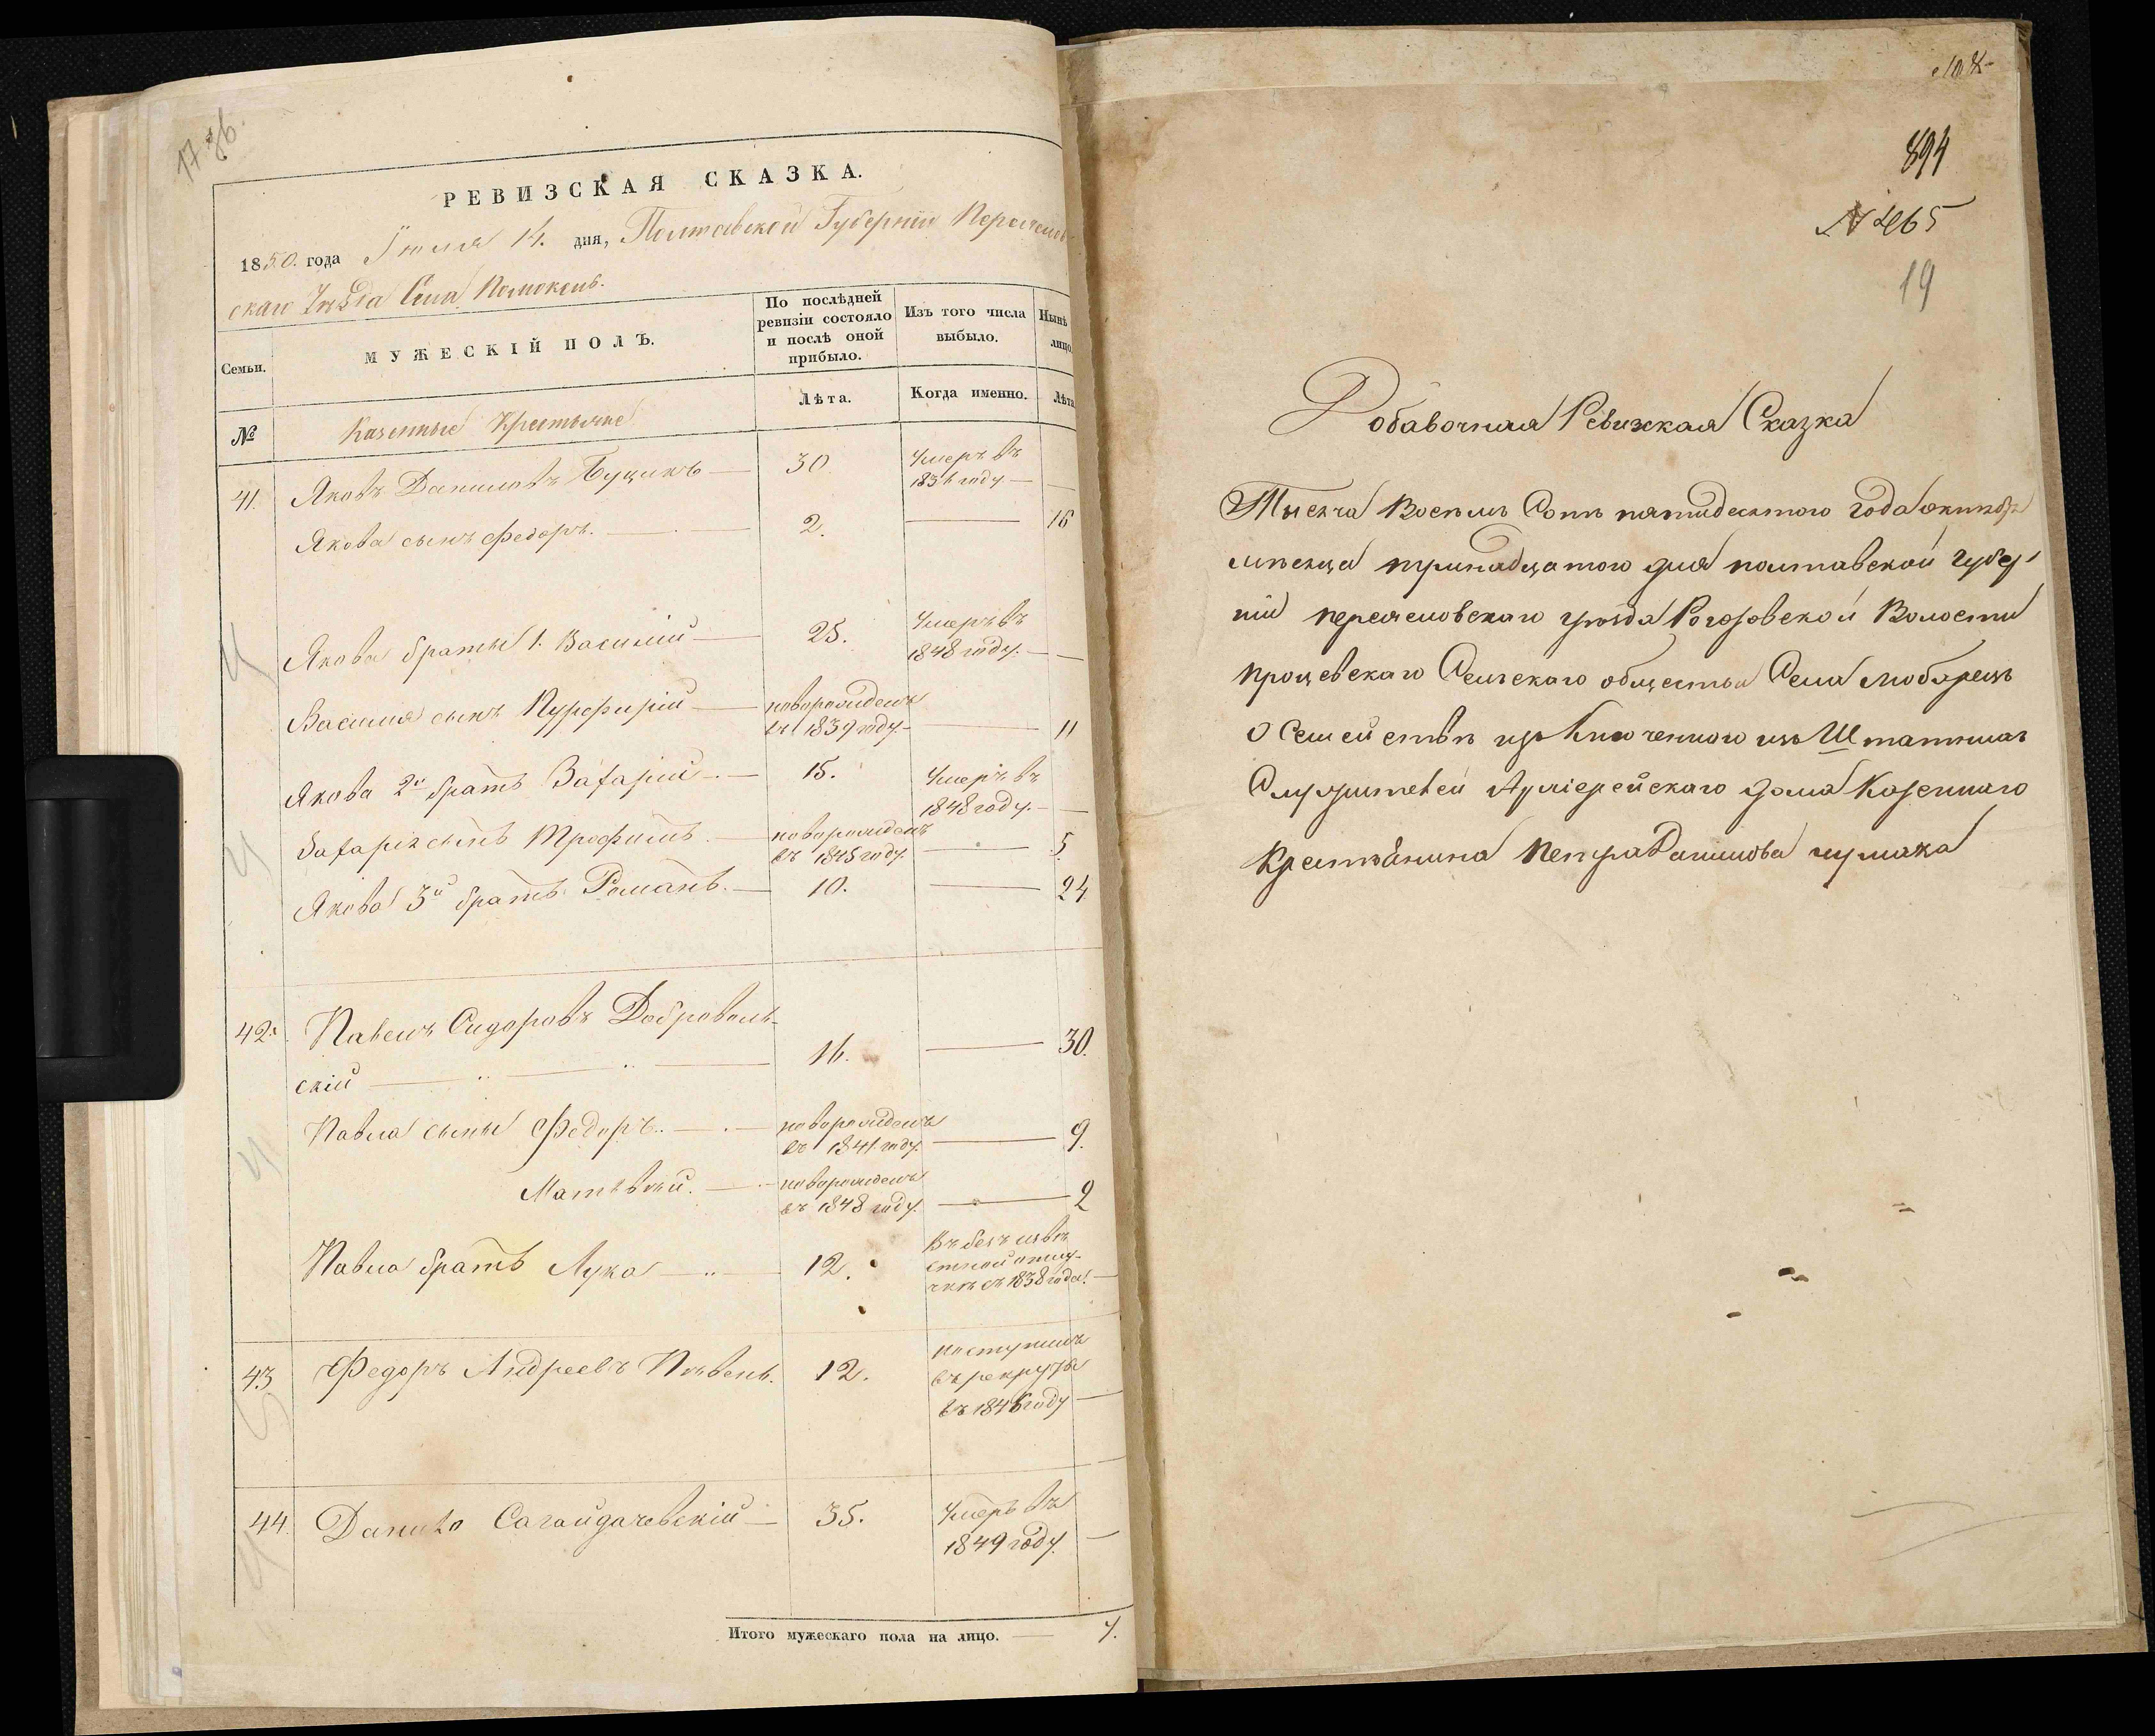 17 зв.
РЕВИЗСКАЯ СКАЗКА.
1850. года Іюля 14. дня, Полтавской Губерніи Переяслов-
скаго Уѣзда Села Помоклей.
Семьи.
МУЖЕСКІЙ ПОЛЪ.
По послѣдней ревизіи состояло и послѣ оной прибыло.
Изъ того числа выбыло.
Нынѣ лицо.
№
Казенные Крестьяне
Лѣта.
Когда именно.
Лѣта
41. Яковъ Даниловъ Буцикъ 30. Умеръ въ
1836 году
Якова сынъ Федоръ. 2. 16
Якова братья 1. Василій 25. Умеръ въ
1848 году.
Василія сынъ Пурфирій новорожденъ
въ 1839 году 11
Якова 2й братъ Захарій 15. Умеръ въ
1848 году.
Захарія сынъ Трофимъ новорожденъ
въ 1845 году. 5.
Якова 3й братъ Романъ. 10. 24
42. Павелъ Сидоровъ Доброволь-
скій 16. 30.
Павла сыны Федоръ. новорожденъ
въ 1841 году. 9.
Матвѣй. новорожденъ
въ 1848 году. 2
Павла братъ Лука 12. Въ безъизвѣ
стной отлу-
чкѣ съ 1838 года.
43 Федоръ Андреевъ Пивень. 12. поступилъ
въ рекруты
въ 1846 году
44. Данило Сагайдачевскій 35. Умеръ въ
1849 году.
Итого мужескаго пола на лицо. 7.
894
№ 465
19
Добавочная Ревизкая Сказка
Тысяча Восемь Сотъ пятидесятого года октября
мѣсяца тринадцатого дня полтавской губер
ніи переясловскаго уѣзда Рогозовской Волости
процевскаго Сельскаго общества Села Любарецъ
О Семействѣ изключенного изъ Штатныхъ
Служителей Архіерейскаго дома Казенного
Крестьянина Петра Данилова чумака